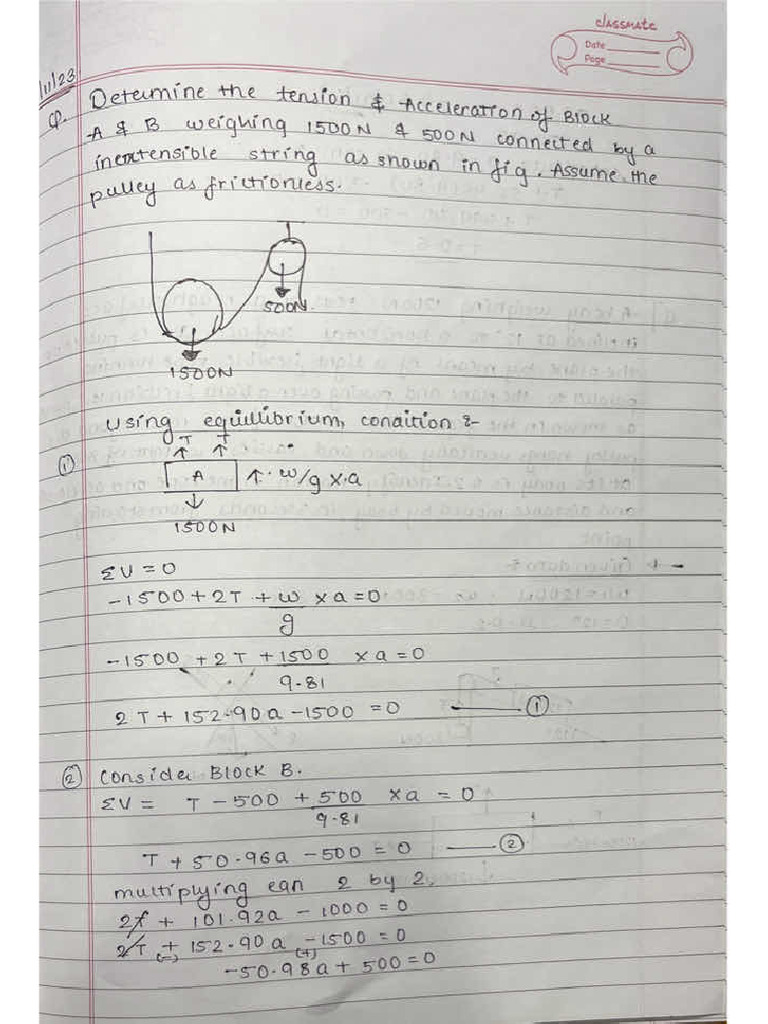 classmate
Date
Page
11/23
Q. Determine the tension & Acceleration of Block
A & B weighing 1500N & 500N connected by a
inextensible string as shown in fig. Assume the
pulley as frictionless.
500N.
1500N
Using equillibrium, condition :-
T T
① A ↑ w/g x a
1500N
ΣV = 0
-1500 + 2T + w/g x a = 0
-1500 + 2T + 1500/9.81 x a = 0
2T + 152.90a - 1500 = 0 — ①
② Consider BLOCK B.
ΣV = T - 500 + 500/9.81 x a = 0
T + 50.96a - 500 = 0 — ②
multiplying eqn 2 by 2,
2T + 101.92a - 1000 = 0
2T + 152.90a - 1500 = 0
(-) (+)
-50.98a + 500 = 0